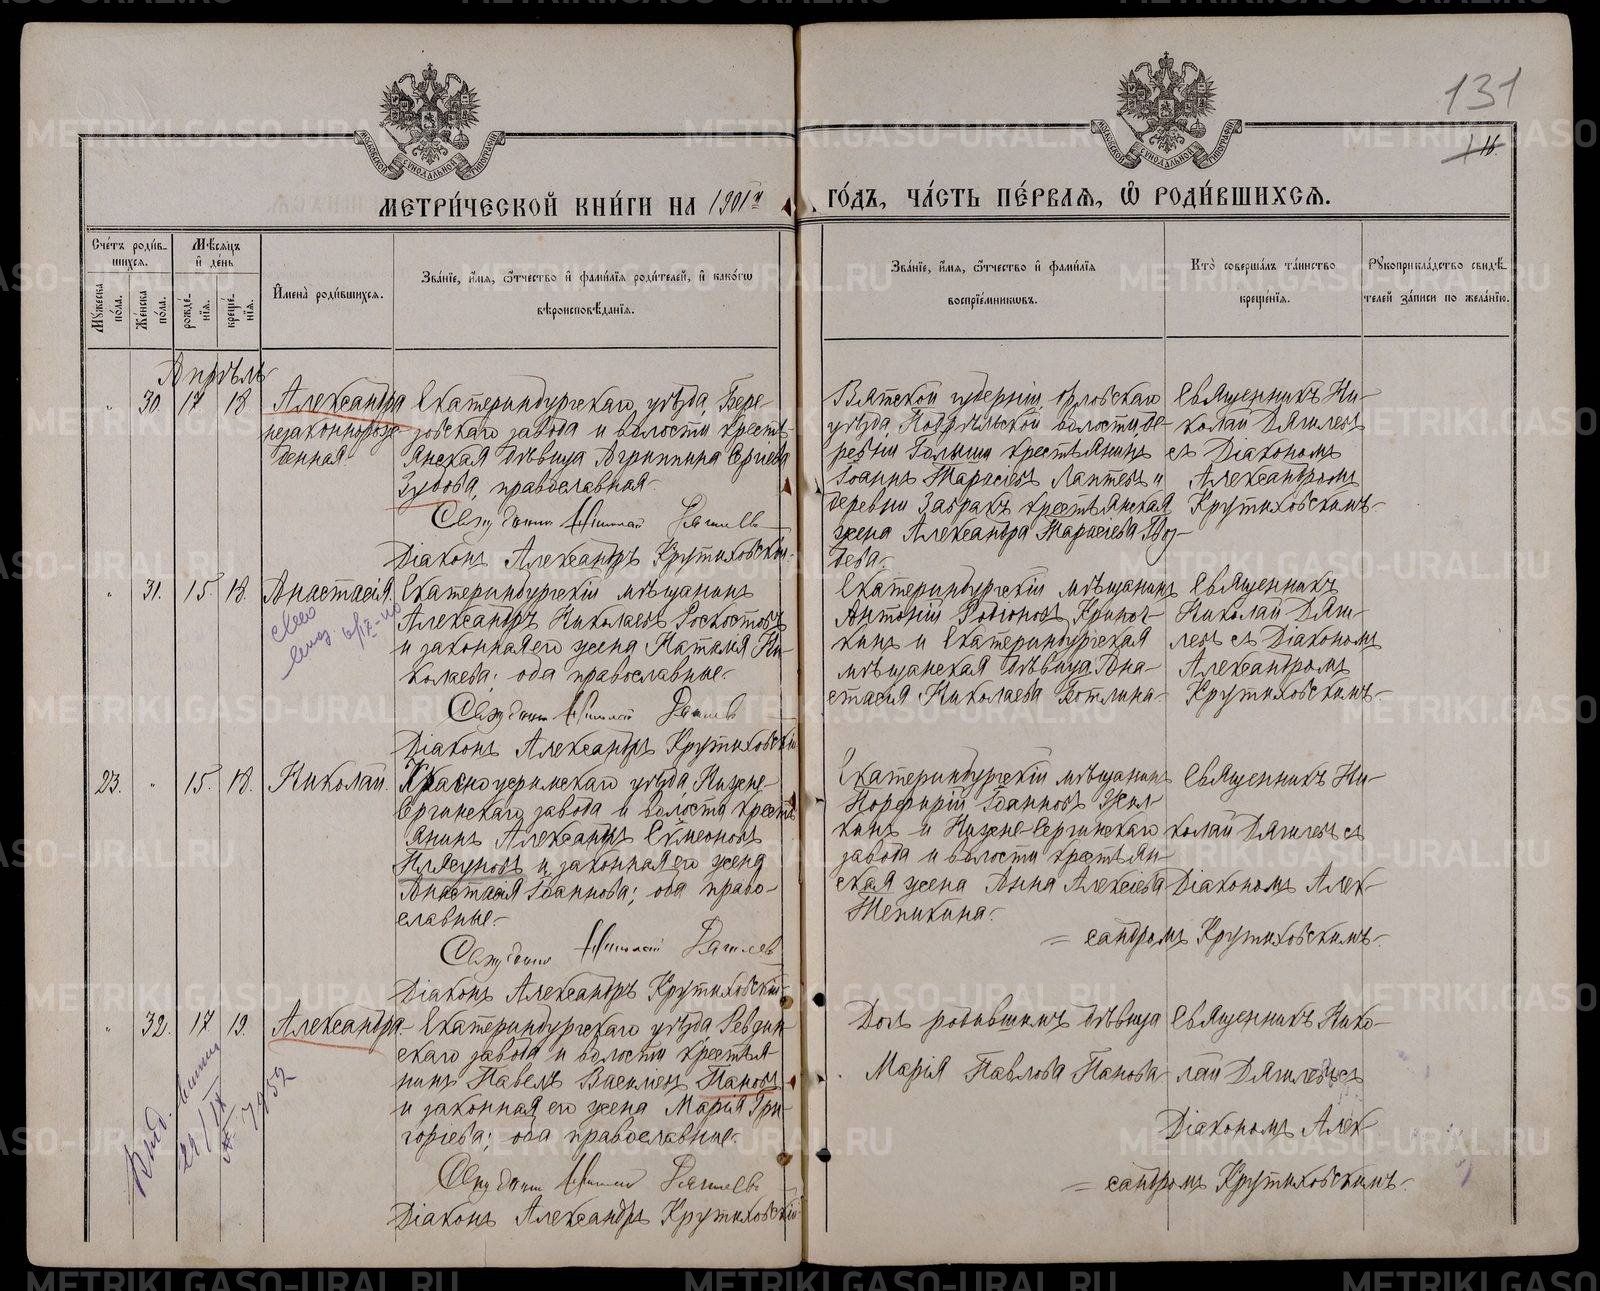 131
116.
МЕТРИ́ЧЕСКОЙ КНИ́ГИ НА 1901й ГО́ДЪ, ЧА́СТЬ ПЕ́РВАЯ, Ѡ҆ РОДИ́ВШИХСЯ.
Сче́тъ роди́в-
шихся.
Мѣ́сяцъ
и҆ де́нь
Мꙋ́жеска
по́ла.
Же́нска
по́ла.
рожде́-
нїя.
креще́-
нїя.
И҆мена̀ роди́вшихся.
Зва́нїе, и҆́мя, ѻ҆́тчество и҆ фами́лїя роди́телей, и҆ како́гѡ
вѣроисповѣ́данїя.
Зва́нїе, и҆́мя, ѻ҆́тчество и҆ фами́лїя
воспрїе́мникѡвъ.
Кто̀ соверша́лъ та́инство
креще́нїя.
Рꙋкоприкла́дство свидѣ́-
телей за́писи по жела́нїю.
Апрѣль
" 30. 17 18 Александра
незаконнорож-
денная
Екатеринбургскаго уѣзда, Бере-
зовскаго завода и волости кресть-
янская дѣвица Агриппина Сергѣева
Зубова, православная.
Священникъ Николай
Діаконъ Александръ Крутиховскій.
Вятской губерніи Орловскаго
уѣзда, волости, де-
ревни крестьянинъ
Іоаннъ Тарасіевъ Лаптевъ и
деревни крестьянская
жена Александра Тарасіева
Священникъ Ни-
колай Дягилевъ
съ Діакономъ
Александромъ
Крутиховскимъ.
" 31. 15. 18. Анастасія.
Екатеринбургскій мѣщанинъ
Александръ Николаевъ
и законная его жена Наталія Ни-
колаева; оба православные.
Священникъ Николай
Діаконъ Александръ Крутиховскій
Екатеринбургскій мѣщанинъ
Антоній Родіоновъ
и Екатеринбургская
мѣщанская дѣвица Ана-
стасія Николаева
Священникъ
Николай Дяги-
левъ съ Діакономъ
Александромъ
Крутиховскимъ.
23. " 15. 18. Николай.
Красноуфимскаго уѣзда, Нижне-
Сергинскаго завода и волости кресть-
янинъ Александръ Симеоновъ
Плясуновъ и законная его жена
Анастасія Іоаннова; оба право-
славные.
Священникъ Николай
Діаконъ Александръ Крутиховскій
Екатеринбургскій мѣщанинъ
Порфирій Іоанновъ
и Нижне-Сергинскаго
завода и волости крестьян-
ская жена Анна Алексіева
Тепикина.
Священникъ Ни-
колай Дягилевъ съ
Діакономъ Алек-
= сандромъ Крутиховскимъ.
" 32. 17 19. Александра
Екатеринбургскаго уѣзда Ревдин-
скаго завода и волости крестья-
нинъ Павелъ Василіевъ Пановъ
и законная его жена Марія Гри-
горіева; оба православные.
Священникъ Николай
Діаконъ Александръ Крутиховскій
Дочь родившимъ дѣвица
Марія Павлова Панова
Священникъ Нико-
лай Дягилевъ съ
Діакономъ Алек-
= сандромъ Крутиховскимъ.